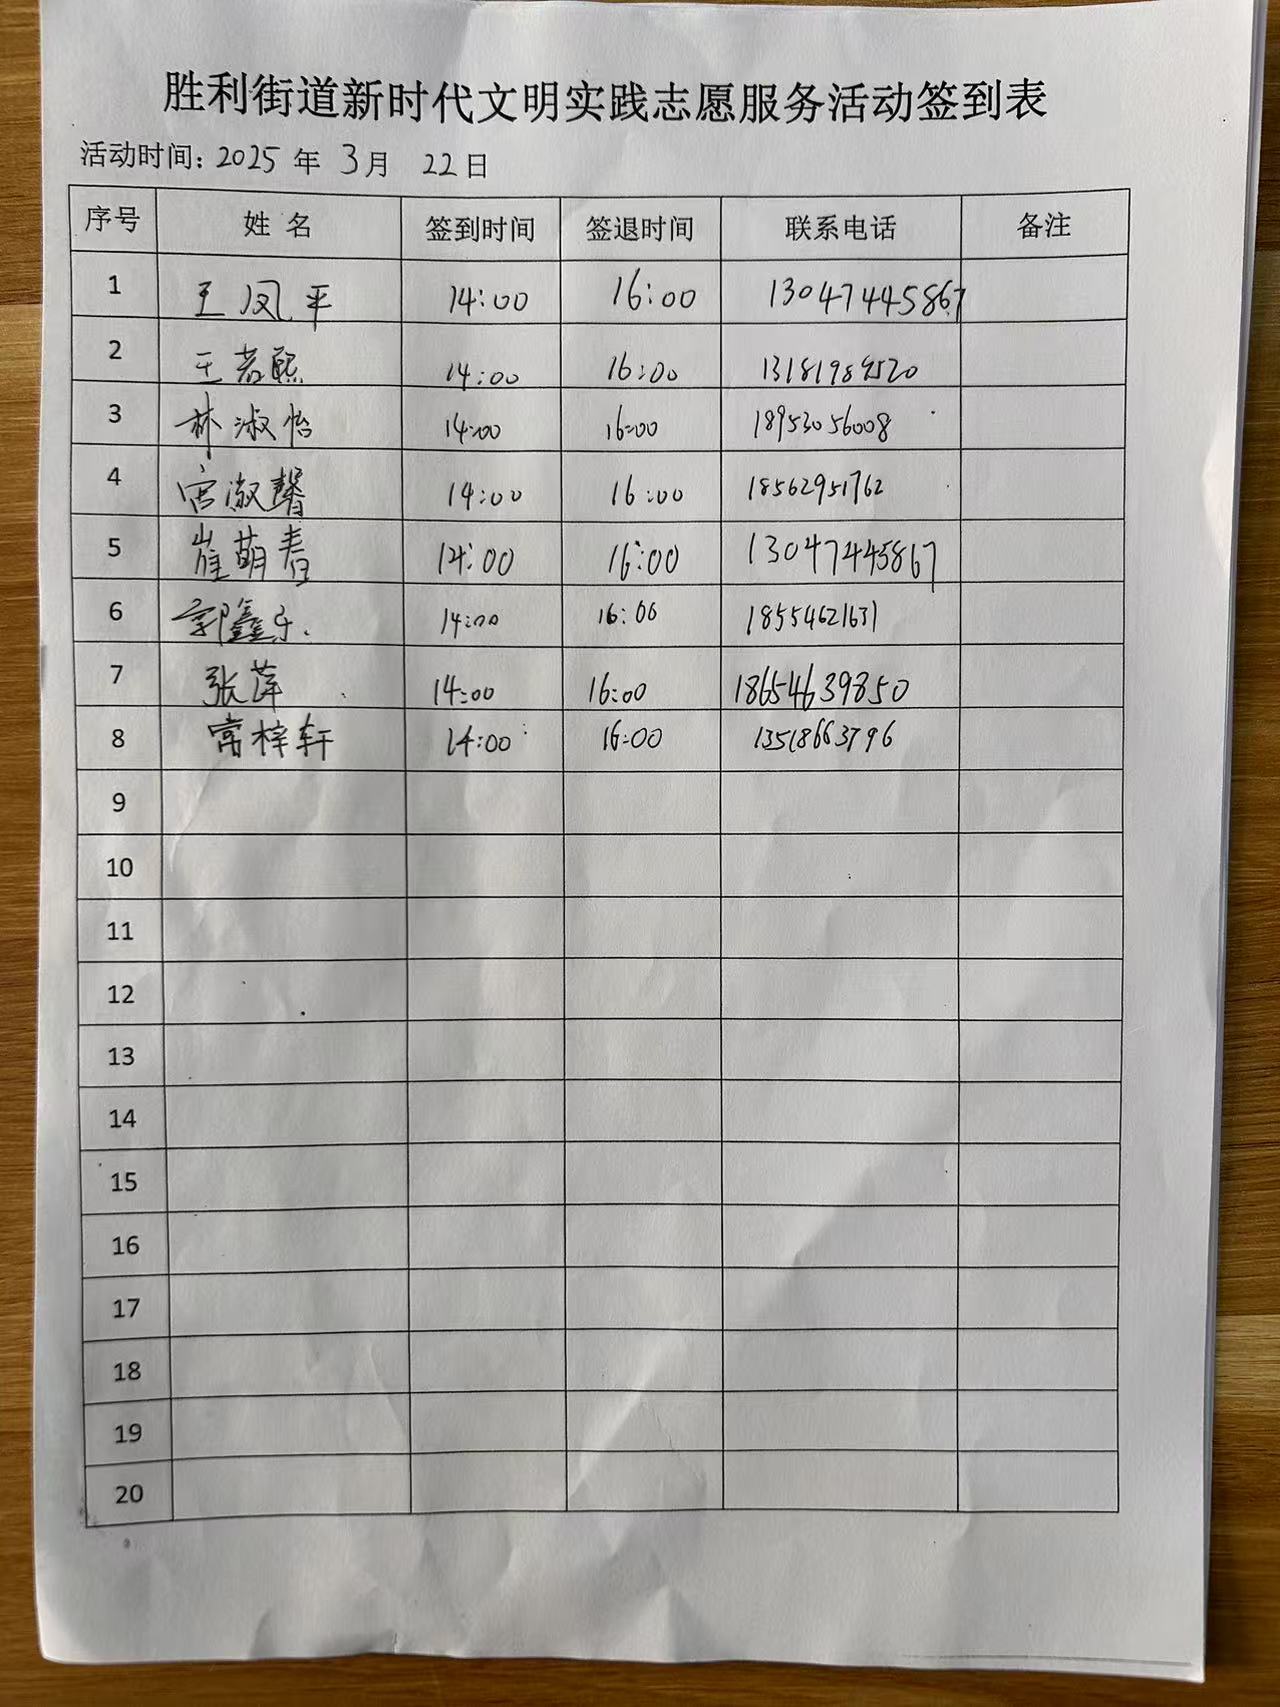 胜利街道新时代文明实践志愿服务活动签到表
活动时间: 2025 年 3月 22日
序号 姓 名 签到时间 签退时间 联系电话 备注
1 王凤平 14:00 16:00 13047445867
2 王若熙 14:00 16:00 13181989520
3 林淑怡 14:00 16:00 18953056008
4 宫淑馨 14:00 16:00 18562951762
5 崔萌春 14:00 16:00 13047445867
6 郭鑫乐 14:00 16:00 18554621631
7 张萍 14:00 16:00 18654639850
8 常梓轩 14:00 16:00 13518663796
9
10
11
12
13
14
15
16
17
18
19
20